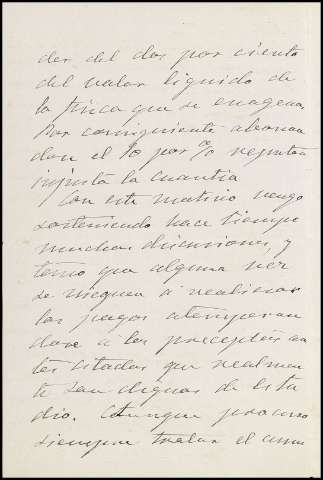 der del dos por ciento
del valor liquido de
la finca que se enagena,
Por consiguiente abonan
don el 10 por % reputan
injusta la cuantia
Con este motivo vengo
sosteniendo hace tiempo
muchas discusiones, y
temo que alguna vez
se nieguen á realizar
los pagos atemperan
dose á los preceptos an
tes citados que realmen
te son dignos de estu
dio. Aunque procuro
siempre tratar el asun